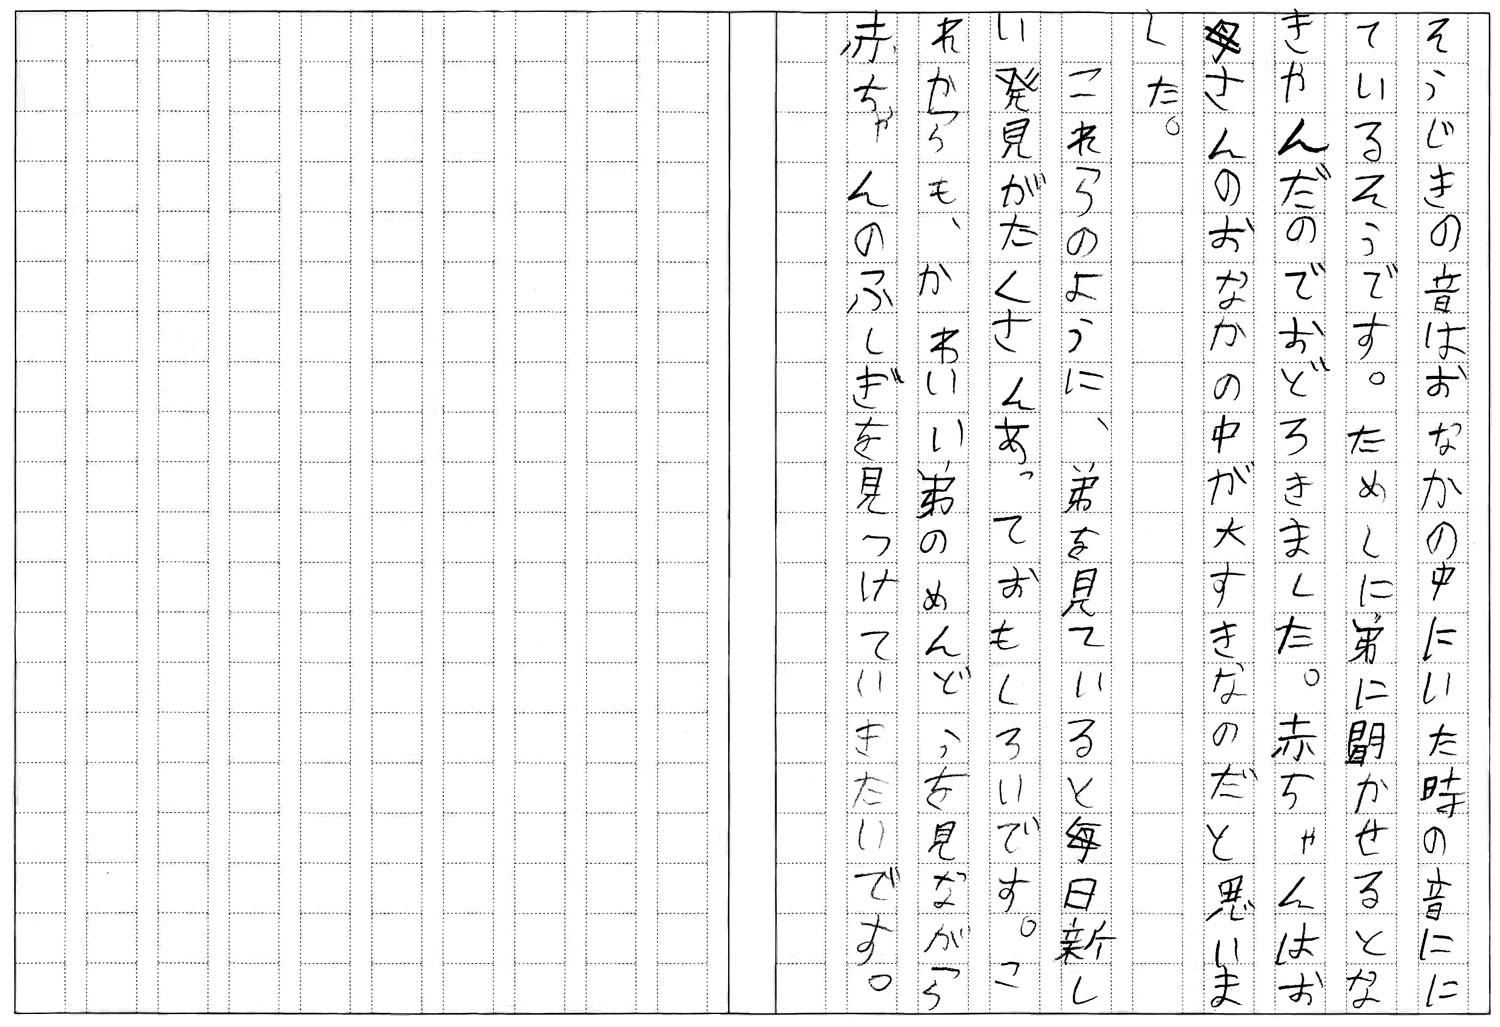 そうじきの音はおなかの中にいた時の音にに
ているそうです。ためしに弟に聞かせるとな
きやんだのでおどろきました。赤ちゃんはお
母さんのおなかの中が大すきなのだと思いま
した。
これらのように、弟を見ていると毎日新し
い発見がたくさんあっておもしろいです。こ
れからも、かわいい弟のめんどうを見ながら
赤ちゃんのふしぎを見つけていきたいです。